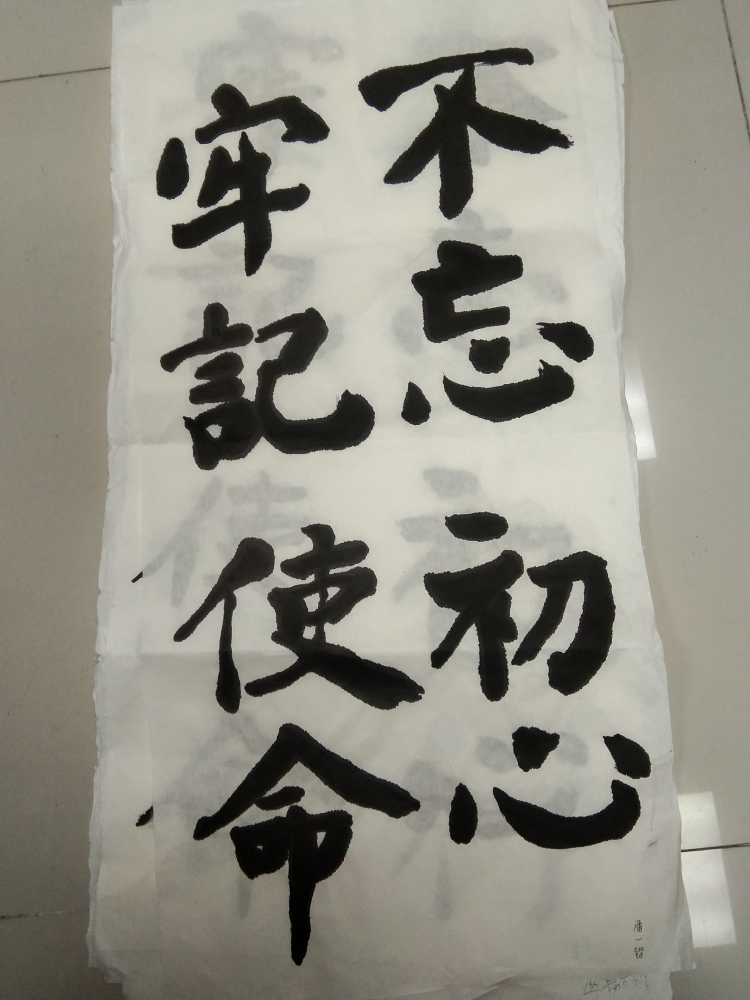 不忘初心
牢記使命
潘一锴